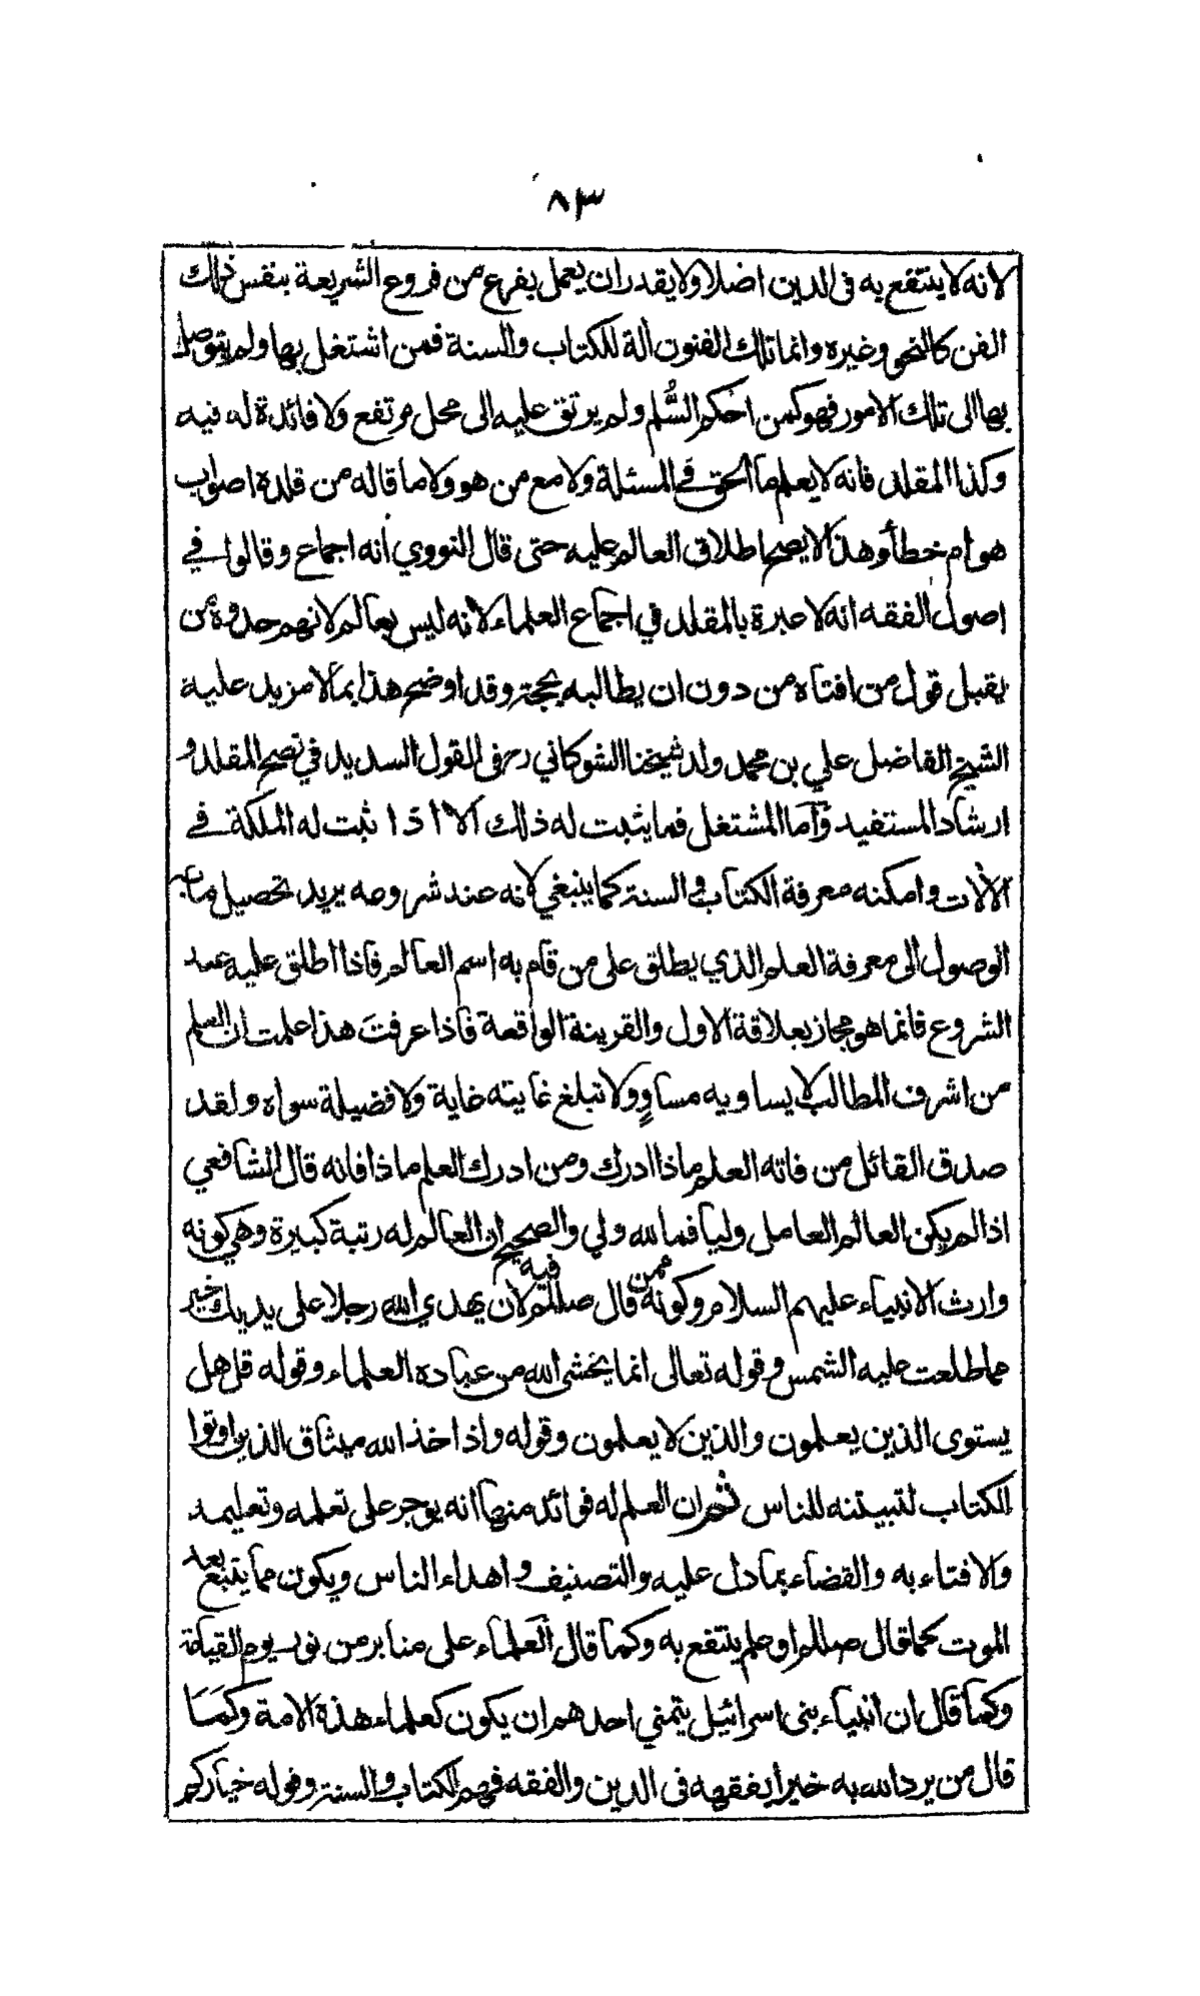 ٨٣
لانه لا ينتفع به فى الدين اضلا ولا يقدر ان يعمل بفرع من فروع الشريعة بنفس ذلك
الفن كالنحو وغيره وانما تلك الفنون ألة للكتاب والسنة فمن اشتغل بها ولم يتوصل
بها الى تلك الامور فهو كمن احكم السُّلم ولم يرتق عليه الى محل مرتفع ولا فائدة له فيه
وكذا المقلد فانه لا يعلم ما الحق في المسئلة ولا مع من هو ولا ما قاله من قلده اصواب
هو ام خطأ وهذا لا يصح اطلاق العالم عليه حتى قال النووي أنه اجماع وقالوا في
اصول الفقه انه لا عبرة بالمقلد في اجماع العلماء لانه ليس بعالم لانهم حدوه بمن
يقبل قول من افتاه من دون ان يطالبه بحجة وقد اوضح هذا بما لا مزيد عليه
الشيخ الفاضل علي بن محمد ولد شيخنا الشوكاني رح فى القول السديد في نصح المقلد و
ارشاد المستفيد وآما المشتغل فما يثبت له ذلك الا اذا ثبت له الملكة في
الألات وامكنه معرفة الكتاب والسنة كما ينبغي لانه عند شروعه يريد تحصيل ما به
الوصول الى معرفة العلم الذي يطلق على من قام به اسم العالم فاذا اطلق عليه عند
الشروع فانما هو مجاز بعلاقة الاول والقرينة الواقعة فاذا عرفتَ هذا علمت ان العلم
من اشرف المطالب لا يساويه مساوٍ ولا تبلغ غايته غاية ولا فضيلة سواه ولقد
صدق القائل من فاته العلم ماذا ادرك ومن ادرك العلم ماذا فاته قال الشافعي
اذا لم يكن العالم العامل وليا فما لله ولي والصحيح ان العالم له رتبة كبيرة وهي كونه
وارث الانبياء عليهم السلام وكونه ممن قال صللم فيه لان يهدي الله رجلا على يديك خير
مما طلعت عليه الشمس وقوله تعالى انما يخشى الله من عباده العلماء وقوله قل هل
يستوى الذين يعلمون والذين لا يعلمون وقوله واذ اخذ الله ميثاق الذين اوتوا
الكتاب لتبيننه للناس ثم ان العلم له فوائد منها انه يوجر على تعلمه وتعليمه
والافتاء به والقضاء بما دل عليه والتصنيف واهداء الناس ويكون مما يتبع بعد
الموت كما قال صللم او علم ينتفع به وكما قال العلماء على منابر من نور يوم القيامة
وكما قال ان انبياء بنى اسرائيل يتمني احدهم ان يكون كعلماء هذه الامة وكما
قال من يرد الله به خيرا يفقهه فى الدين والفقه فهم الكتاب والسنة وقوله خياركم